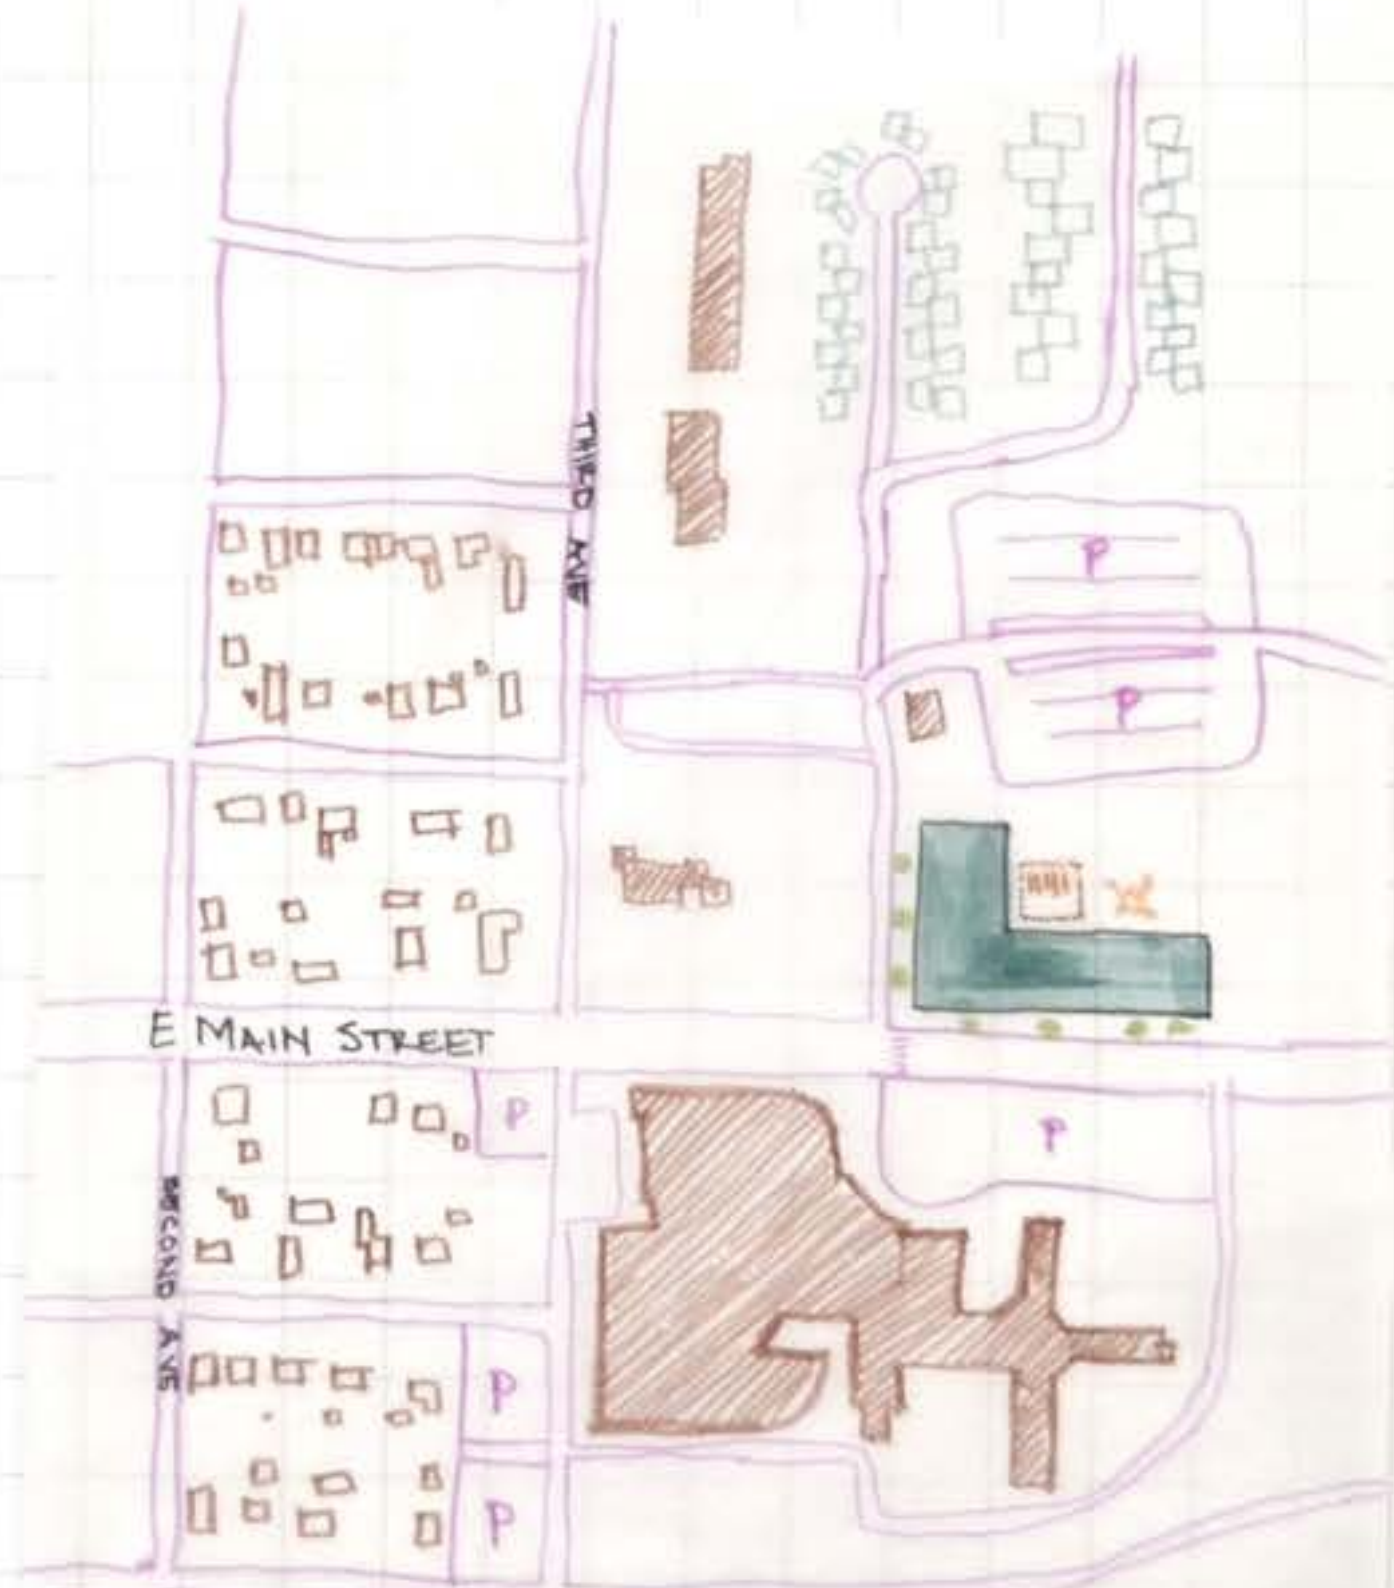 THIRD AVE
P
P
E MAIN STREET
P
P
SECOND AVE
P
P